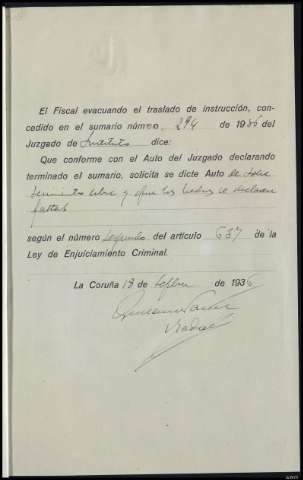 El Fiscal evacuando el traslado de instrucción, con-
cedido en el sumario número 294 de 1936 del
Juzgado de Instituto dice:
Que conforme con el Auto del Juzgado declarando
terminado el sumario, solicita se dicte Auto de sobre
seimiento libre y que los hechos se declaren
faltas
según el número segundo del artículo 637 de la
Ley de Enjuiciamiento Criminal.
La Coruña 18 de Sepbre de 1936